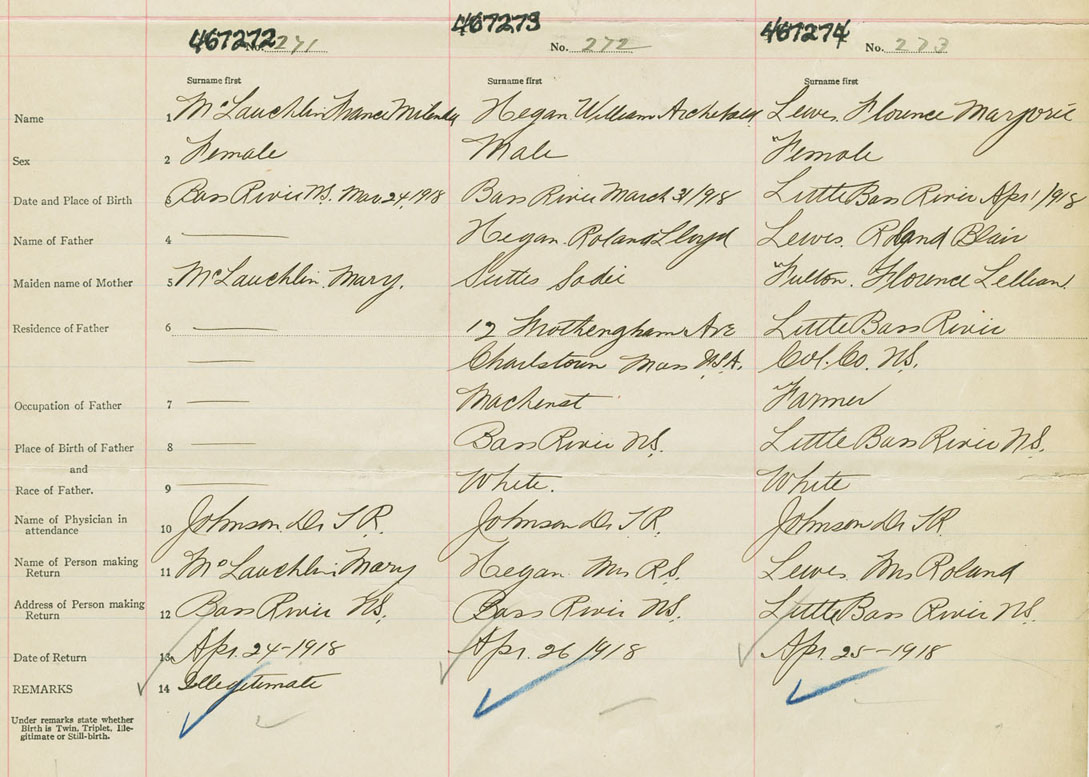 467272 467273 467274
No. 271 No. 272 No. 273
Surname first Surname first Surname first
Name 1 McLauchlin Melenda Hegan William Archebald Lewis. Florence Marjorie
Sex 2 Female Male Female
Date and Place of Birth 3 Bass River N.S. Mar 24, 1918 Bass River March 31/918 Little Bass River Apr 1/918
Name of Father 4 Hegan Roland Lloyd Lewis. Roland Blair
Maiden name of Mother 5 McLauchlin. Mary. Suttes Sadie Fulton. Florence Lellian.
Residence of Father 6 12 Ave Little Bass River
Charlstown Mass U.S.A. Col. Co. N.S.
Occupation of Father 7 Machenst Farmer
Place of Birth of Father 8 Bass River N.S. Little Bass River N.S.
and
Race of Father. 9 White. White
Name of Physician in
attendance 10 Johnson Dr T R. Johnson Dr T R. Johnson Dr T R.
Name of Person making
Return 11 McLauchlin Mary Hegan Mrs R S. Lewis Mrs Roland
Address of Person making
Return 12 Bass River N.S. Bass River N.S. Little Bass River N.S.
Date of Return 13 Apr. 24-1918 Apr. 26 1918 Apr. 25-1918
REMARKS 14 Illegetimate
Under remarks state whether
Birth is Twin, Triplet, Ille-
gitimate or Still-birth.